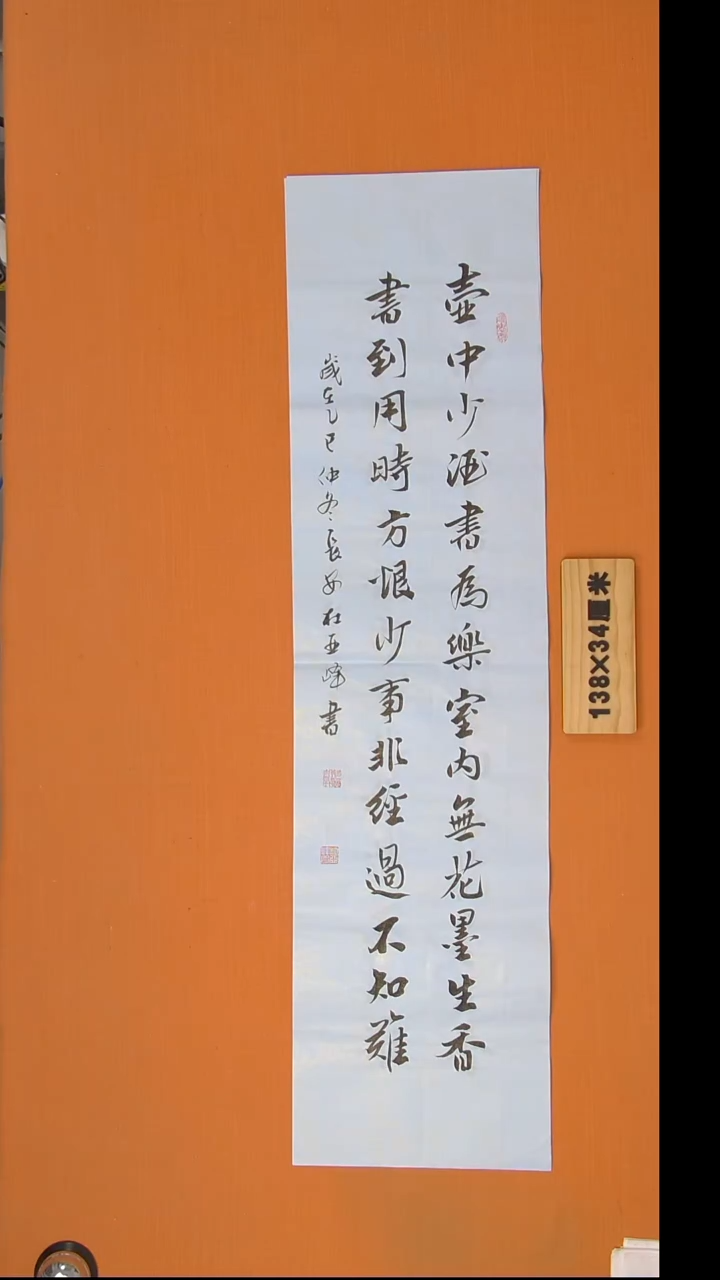 壺中少酒書為樂室內無花墨生香
書到用時方恨少事非經過不知難
歲在乙巳仲冬長安杜亚峰書
138×34厘米